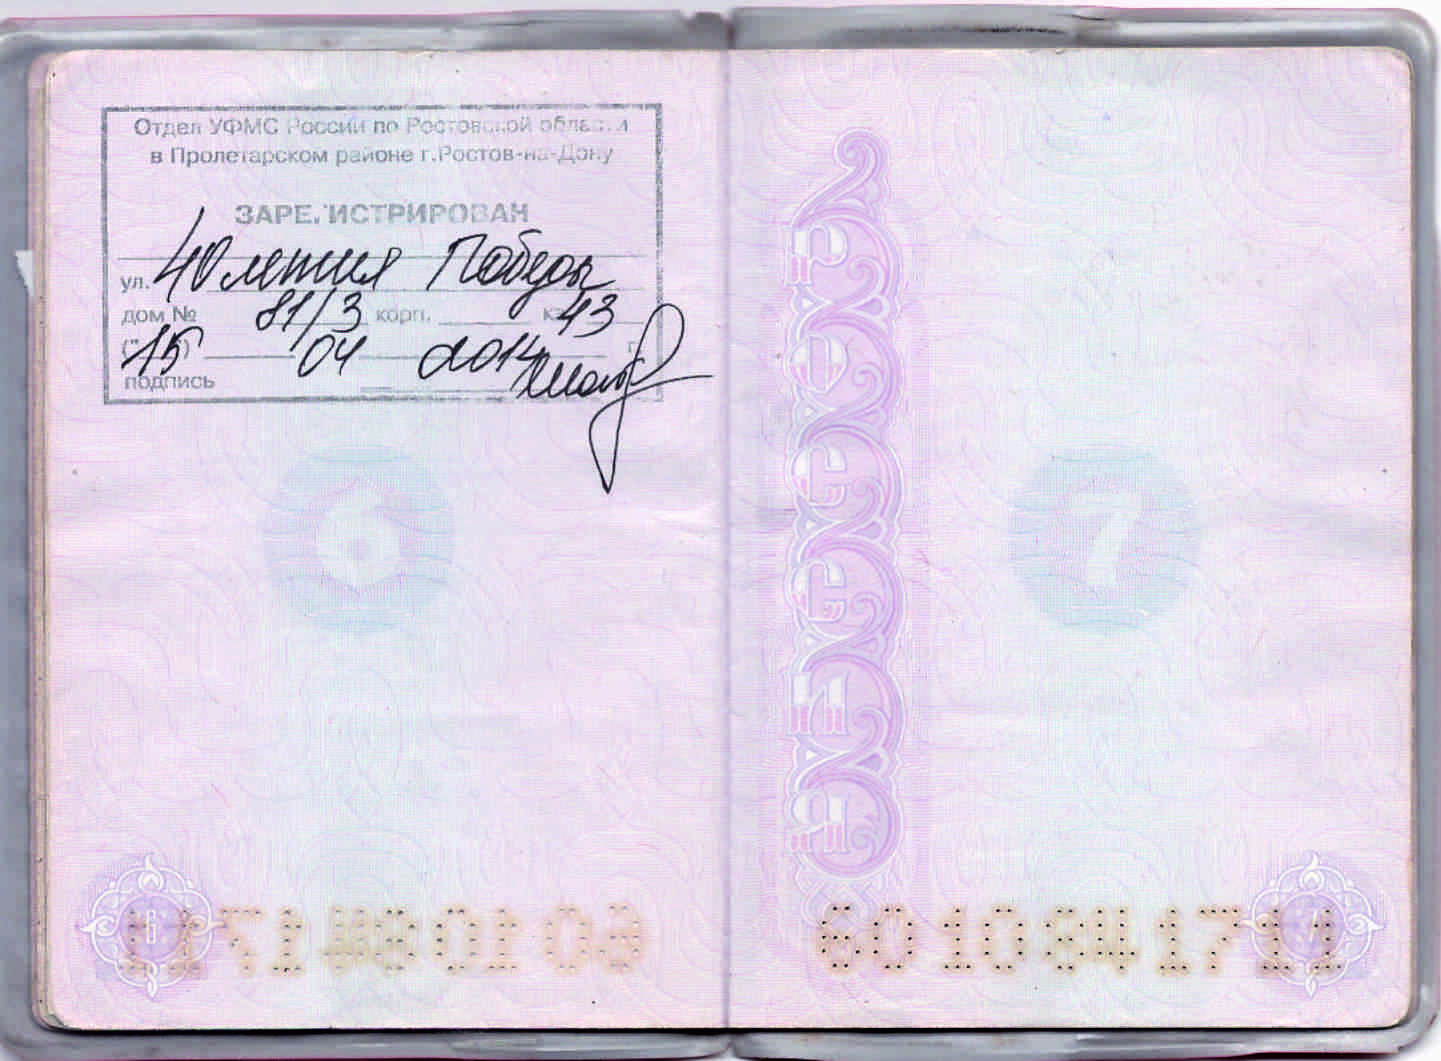 Отдел УФМС России по Ростовской области
в Пролетарском районе г.Ростов-на-Дону
ЗАРЕГИСТРИРОВАН
ул. 40 летия Победы
дом № 81/3 корп. кв 43
("15") 04 2014 г.
подпись
6
7
6
6010841711